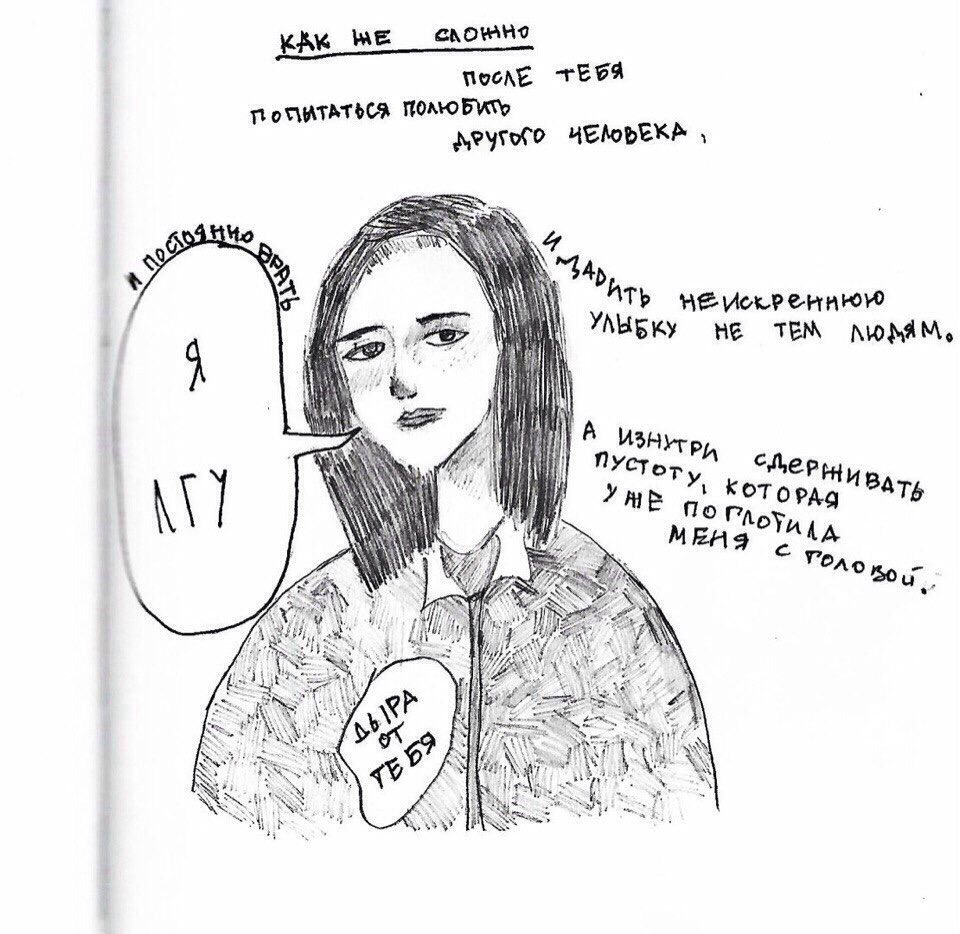 КАК ЖЕ СЛОЖНО
ПОСЛЕ ТЕБЯ
ПОПИТАТЬСЯ ПОЛЮБИТЬ
ДРУГОГО ЧЕЛОВЕКА,
И ПОСТОЯННО ВРАТЬ
Я
ЛГУ
И ДАРИТЬ НЕИСКРЕННЮЮ
УЛЫБКУ НЕ ТЕМ ЛЮДЯМ.
А ИЗНУТРИ СДЕРЖИВАТЬ
ПУСТОТУ, КОТОРАЯ
УЖЕ ПОГЛОТИЛА
МЕНЯ С ГОЛОВОЙ.
ДЫРА
ОТ
ТЕБЯ